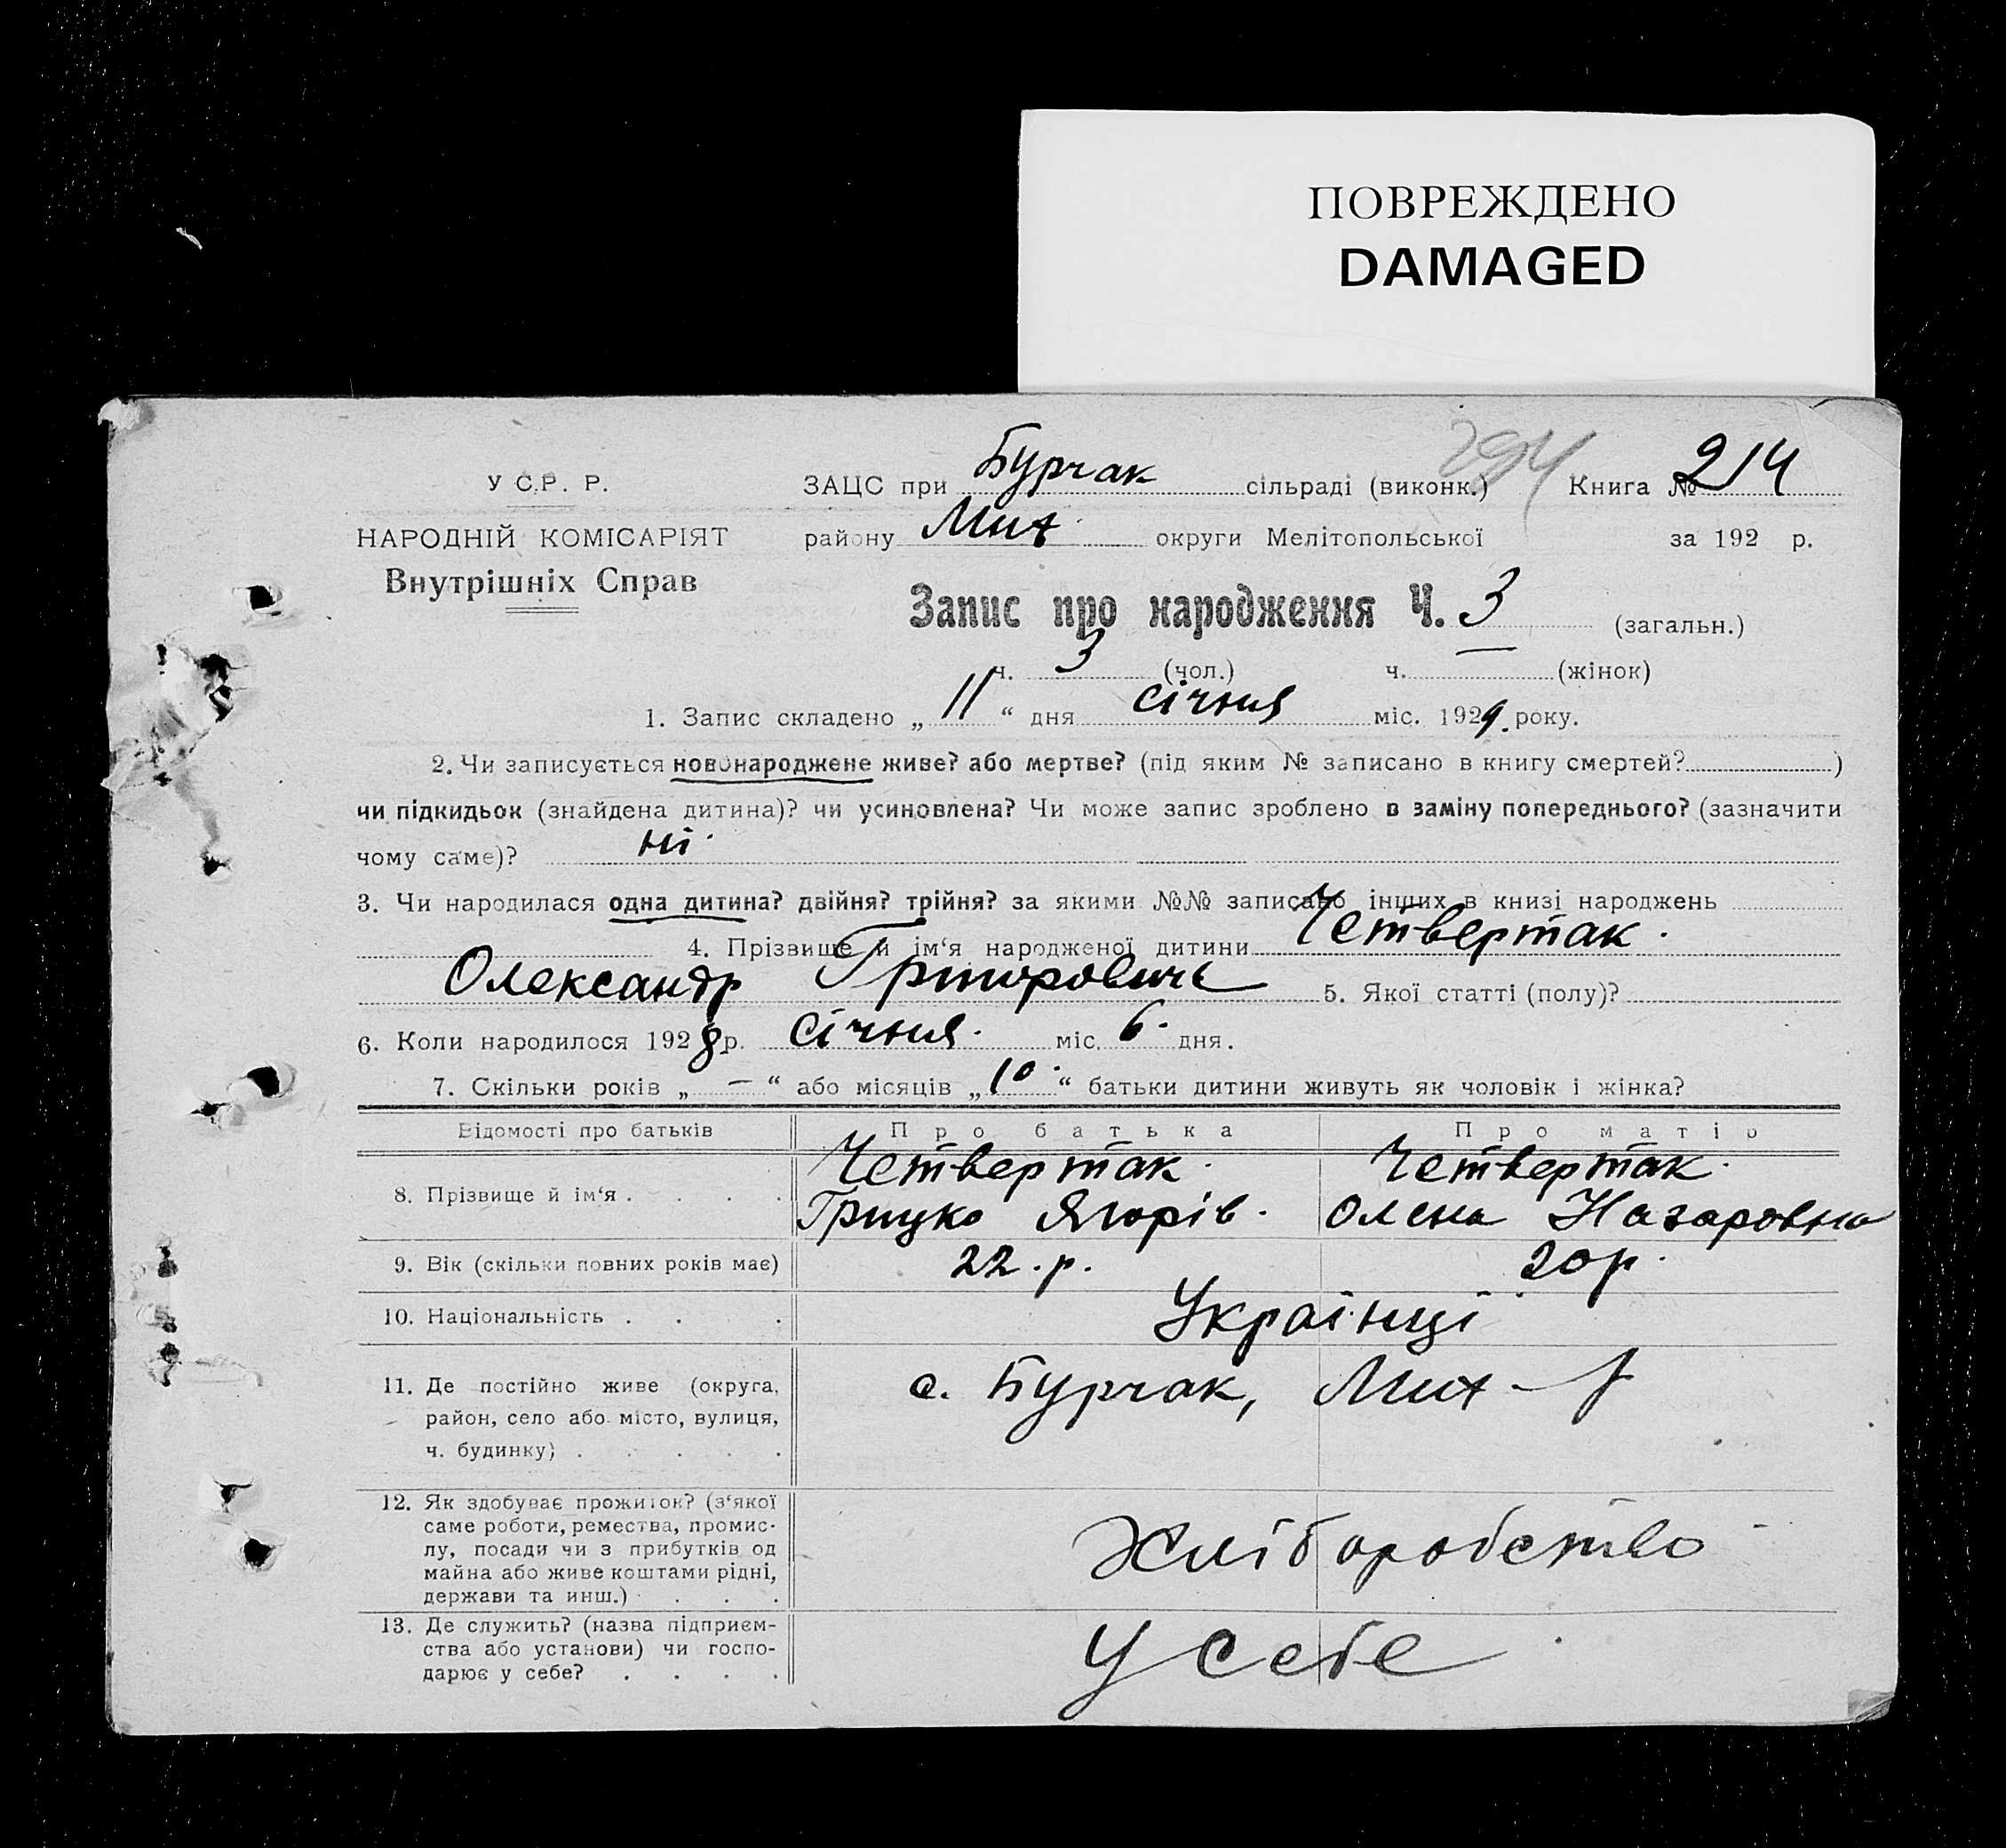 ПОВРЕЖДЕНО
DAMAGED
294
У С.Р. Р.
ЗАЦС при Бурчак сільраді (виконк.) Книга № 214
НАРОДНІЙ КОМІСАРІЯТ
району Мих. округи Мелітопольської за 192 р.
Внутрішніх Справ
Запис про народження Ч. 3 (загальн.)
ч. 3 (чол.) ч. (жінок)
1. Запис складено „ 11 “ дня січня міс. 1929. року.
2. Чи записується новонароджене живе? або мертве? (під яким № записано в книгу смертей? )
чи підкидьок (знайдена дитина)? чи усиновлена? Чи може запис зроблено в заміну попереднього? (зазначити
чому саме)? ні.
3. Чи народилася одна дитина? двійня? трійня? за якими №№ записано інших в книзі народжень
4. Прізвище й ім‘я народженої дитини Четвертак.
Олександр Григорович 5. Якої статті (полу)?
6. Коли народилося 1928 р. січня. міс. 6. дня.
7. Скільки років „ — “ або місяців „ 10. “ батьки дитини живуть як чоловік і жінка?
Відомості про батьків Про батька Про матір
8. Прізвище й ім‘я . . . . Четвертак. Четвертак.
Грицко Ягорів. Олена Назаровна
9. Вік (скільки повних років має) 22. р. 20 р.
10. Національність . . . Українці
11. Де постійно живе (округа, с. Бурчак, Мих - р
район, село або місто, вулиця,
ч. будинку) . . . . .
12. Як здобуває прожиток? (з‘якої
саме роботи, ремества, промис-
лу, посади чи з прибутків од Хліборобство
майна або живе коштами рідні,
держави та инш.) . . .
13. Де служить? (назва підприєм-
ства або установи) чи госпо- У себе
дарює у себе? . . . .